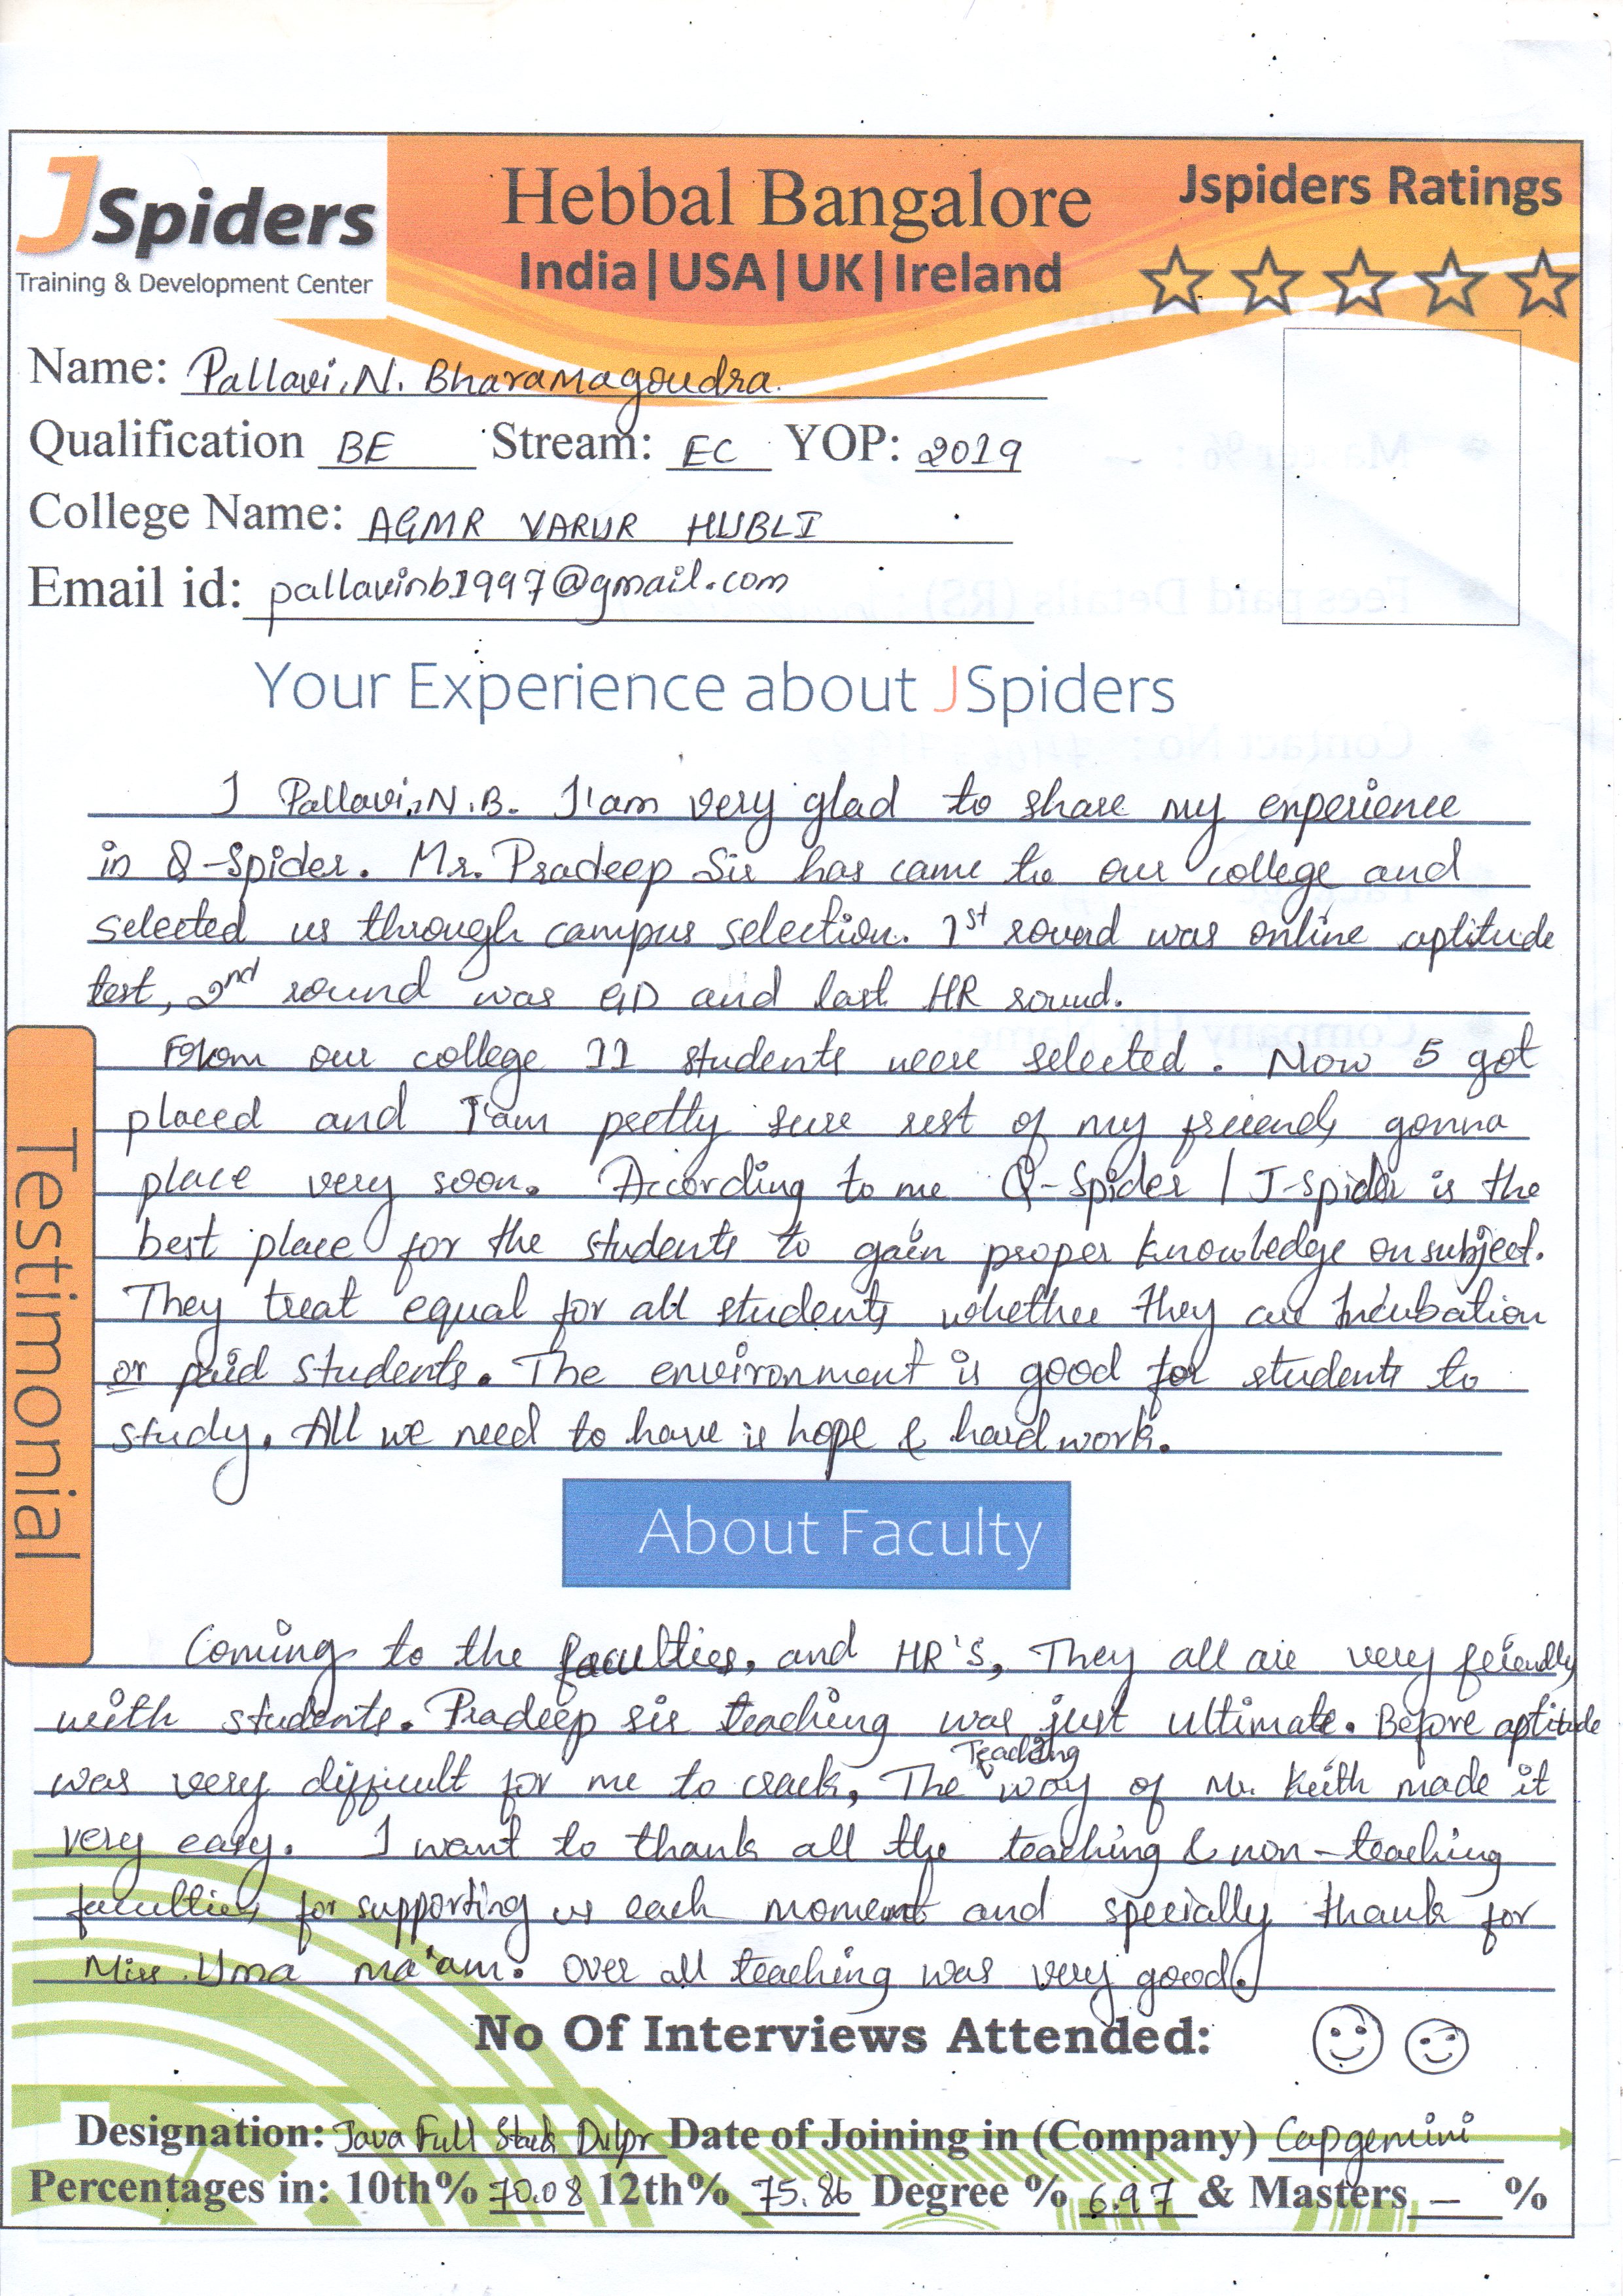 JSpiders
Training & Development Center
Hebbal Bangalore
India|USA|UK|Ireland
Jspiders Ratings
Name: Pallavi.N. Bharamagoudra.
Qualification BE Stream: EC YOP: 2019
College Name: AGMR VARUR HUBLI
Email id: pallavinb1997@gmail.com
Your Experience about JSpiders
I Pallavi.N.B. I'am very glad to share my experience
in Q-Spider. Mr. Pradeep Sir has came to our college and
selected us through campus selection. 1st round was online aptitude
test, 2nd round was GD and last HR round.
From our college 11 students were selected. Now 5 got
placed and I'am pretty sure rest of my friends gonna
place very soon. According to me Q-Spider / J-spider is the
best place for the students to gain proper knowledge on subject.
They treat equal for all students whether they are Incubation
or paid students. The environment is good for students to
study. All we need to have is hope & hard work.
Testimonial
About Faculty
Coming to the faculties, and HR'S, They all are very friendly
with students. Pradeep sir teaching was just ultimate. Before aptitude
was very difficult for me to crack, The Teaching way of Mr. Keith made it
very easy. I want to thank all the teaching & non-teaching
faculties for supporting us each moment and specially thank for
Miss. Uma ma'am. Over all teaching was very good.
No Of Interviews Attended:
Designation: Java Full Stack Dvlpr Date of Joining in (Company) Capgemini
Percentages in: 10th% 70.08 12th% 75.86 Degree % 6.97 & Masters — %